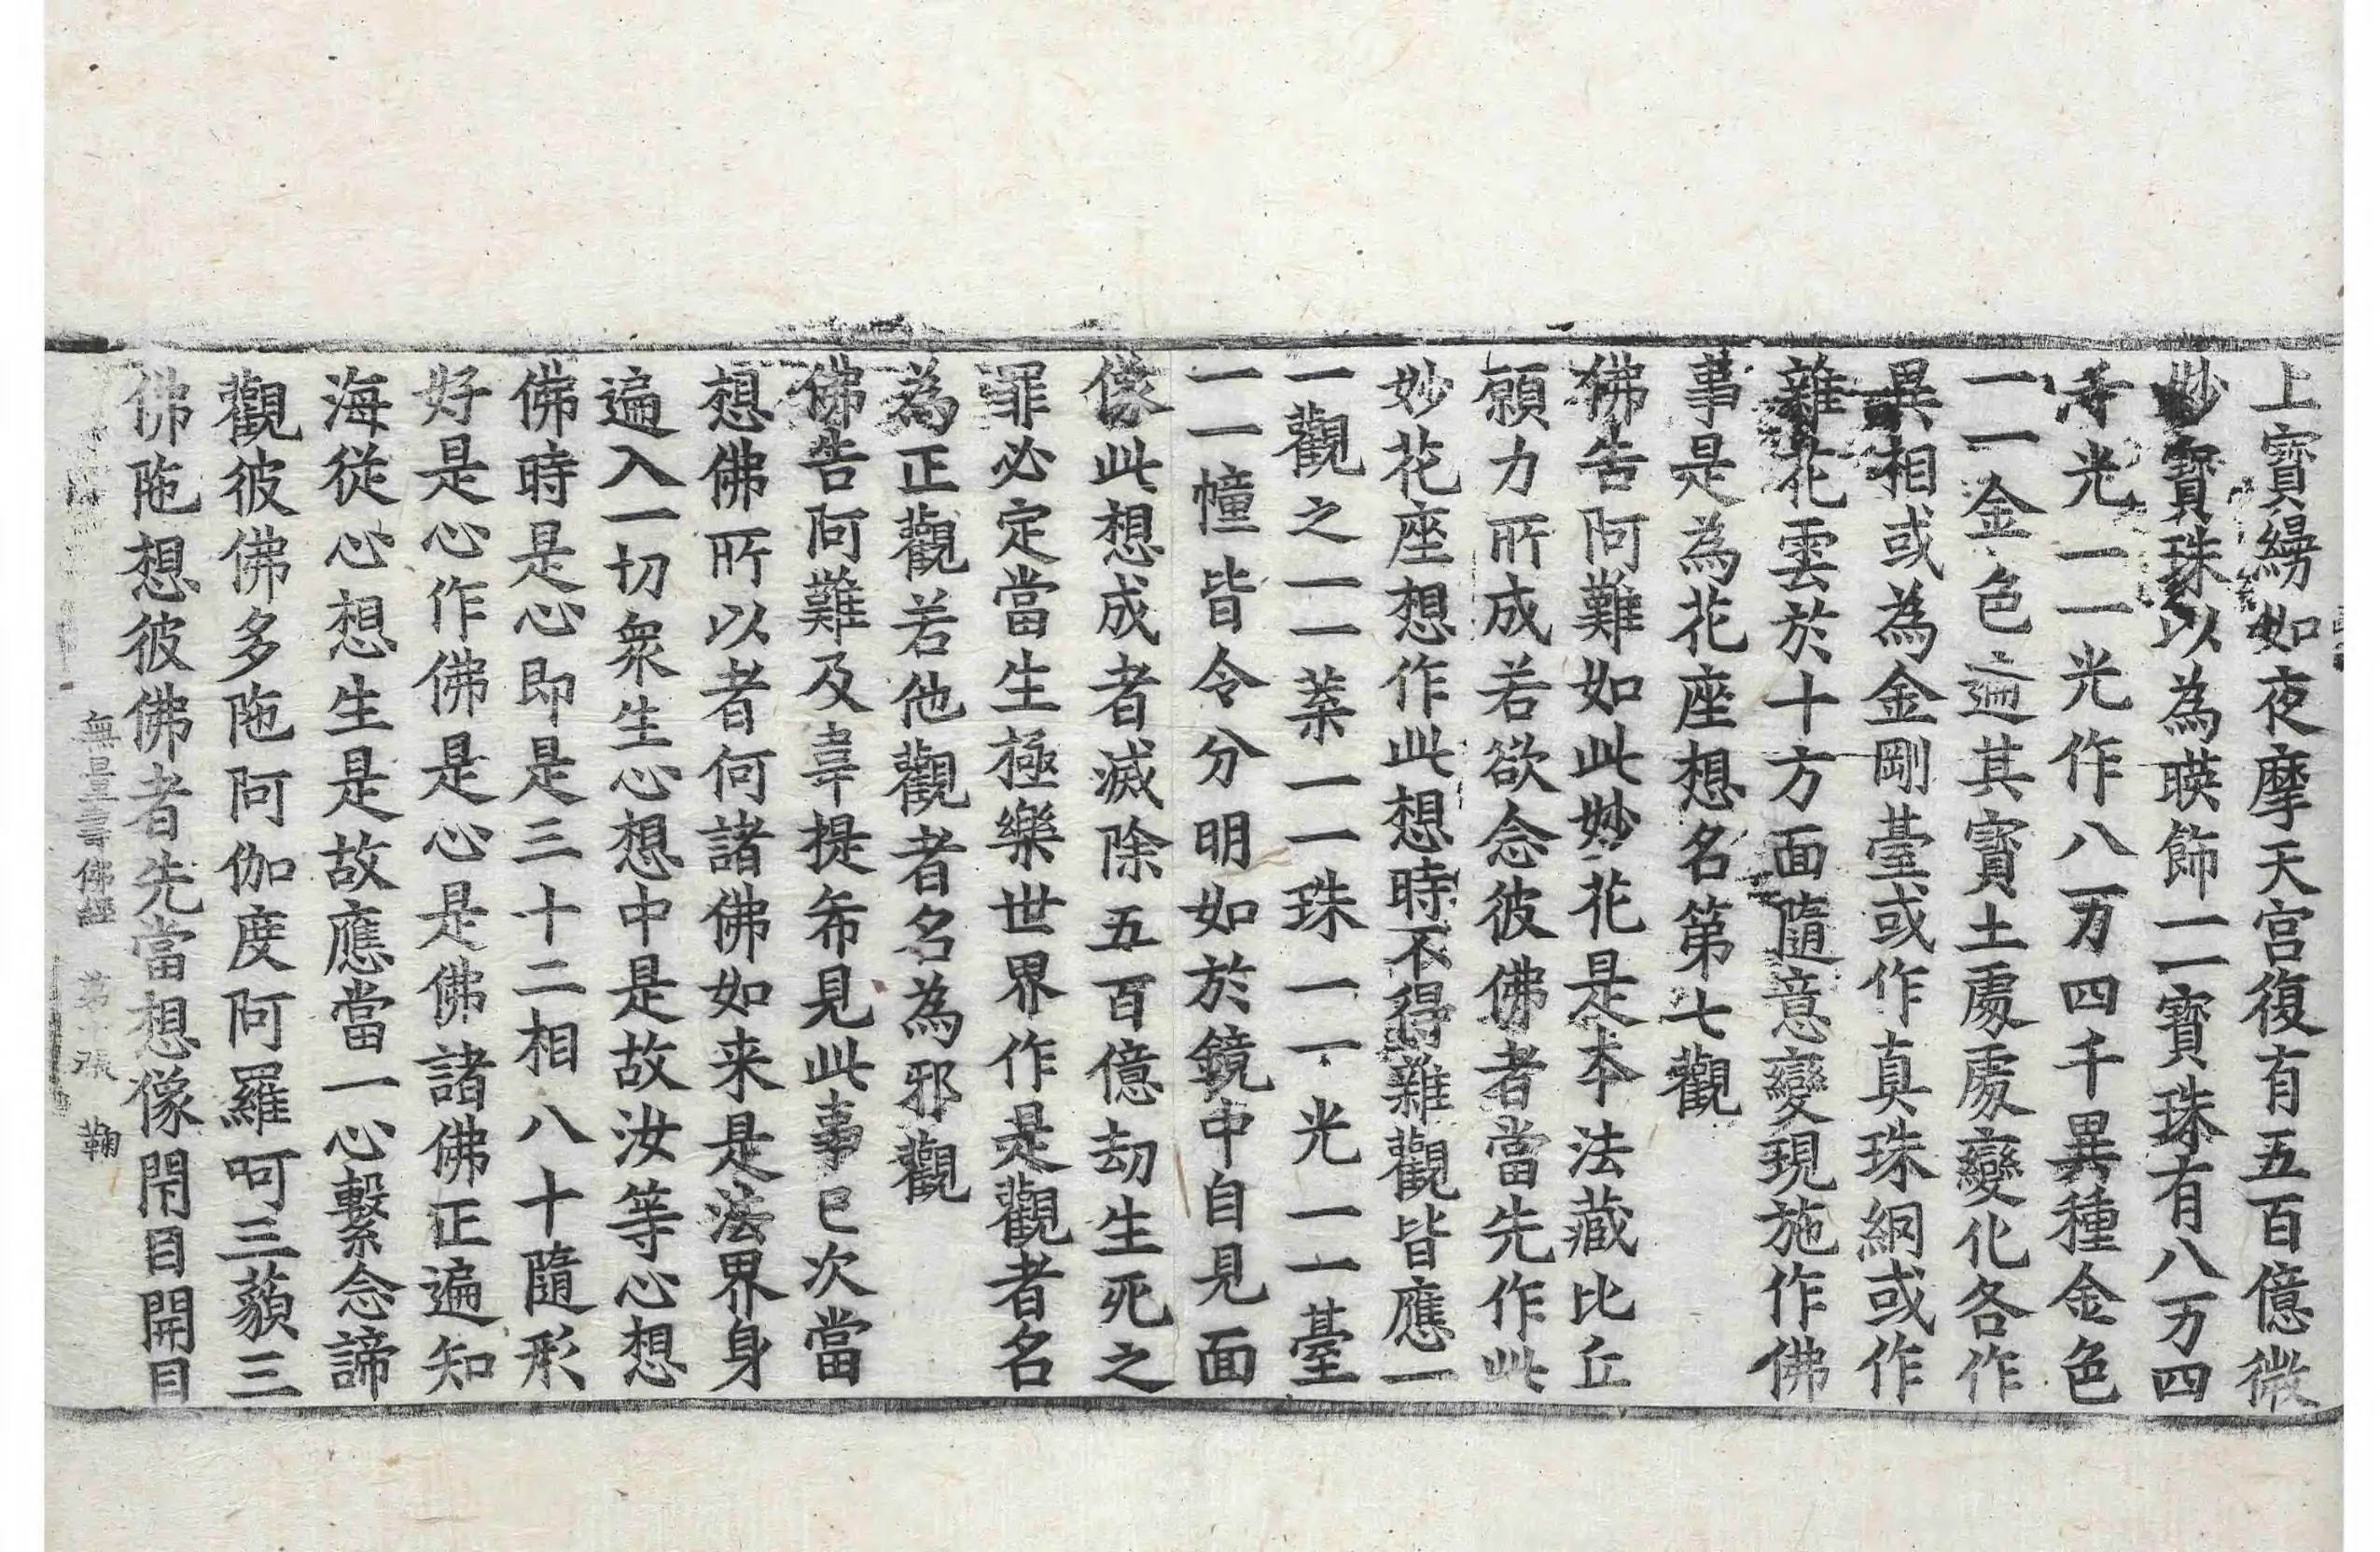 上寶縵如夜摩天宮復有五百億微
妙寶珠以為暎飾一一寶珠有八万四
千光一一光作八万四千異種金色
一一金色遍其寶土處處變化各作
異相或為金剛臺或作真珠網或作
雜花雲於十方面隨意變現施作佛
事是為花座想名第七觀
佛告阿難如此妙花是本法藏比丘
願力所成若欲念彼佛者當先作此
妙花座想作此想時不得雜觀皆應一
一觀之一一葉一一珠一一光一一臺
一一幢皆令分明如於鏡中自見面
像此想成者滅除五百億劫生死之
罪必定當生極樂世界作是觀者名
為正觀若他觀者名為邪觀
佛告阿難及韋提希見此事已次當
想佛所以者何諸佛如来是法界身
遍入一切衆生心想中是故汝等心想
佛時是心即是三十二相八十隨形
好是心作佛是心是佛諸佛正遍知
海從心想生是故應當一心繫念諦
觀彼佛多陁阿伽度阿羅呵三藐三
佛陁想彼佛者先當想像閇目開目
無量壽佛經 第十張 鞠